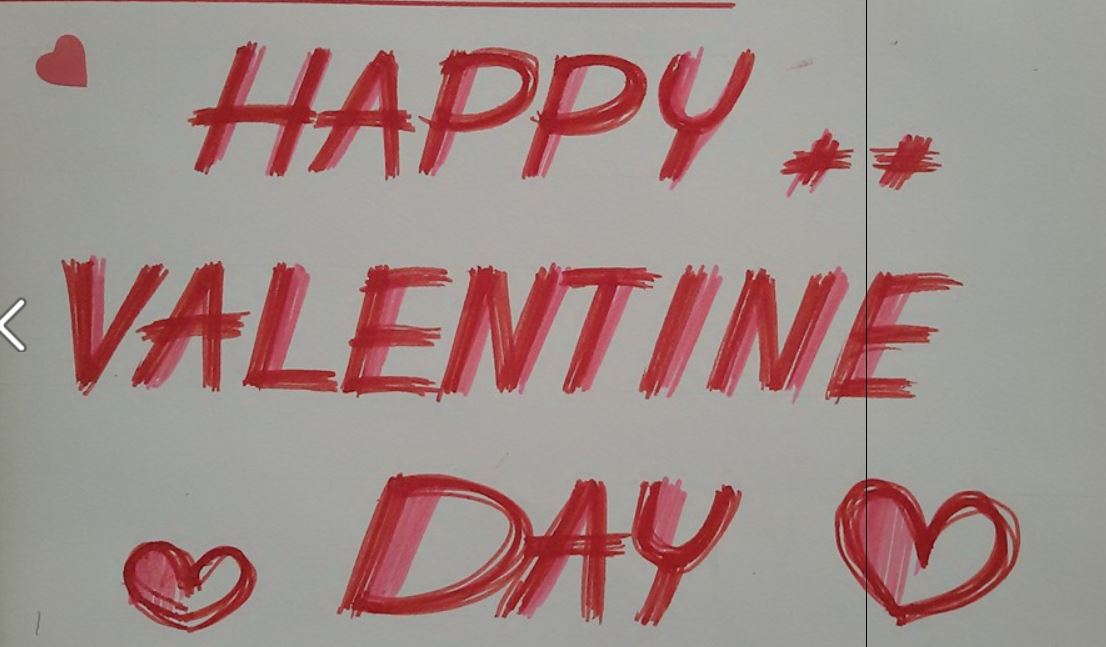 HAPPY ..
VALENTINE
DAY